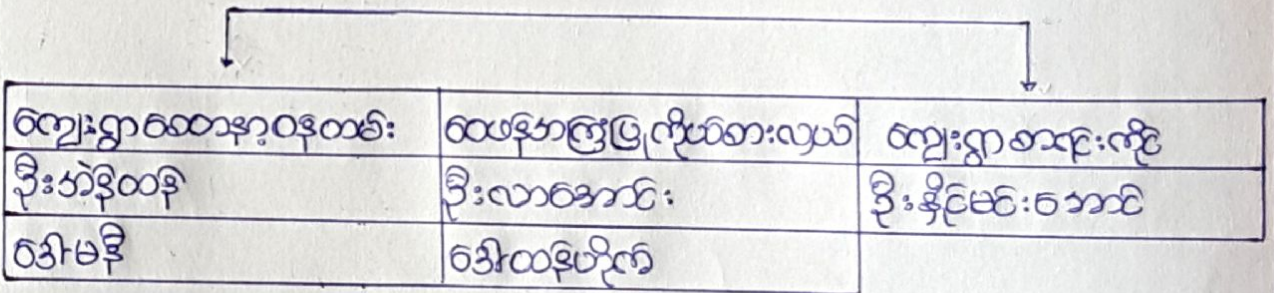 ကျေးရွာစေတနာ့ဝန်ထမ်း ဝေဖန်အကြံပြုကိုယ်စားလှယ် ကျေးရွာစာရင်းကိုင်
ဦးအဲန်ထန် ဦးလာအောင်း ဦးနိုင်မင်းအောင်
ဒေါ်မနီ ဒေါ်ထန်ဟိုက်